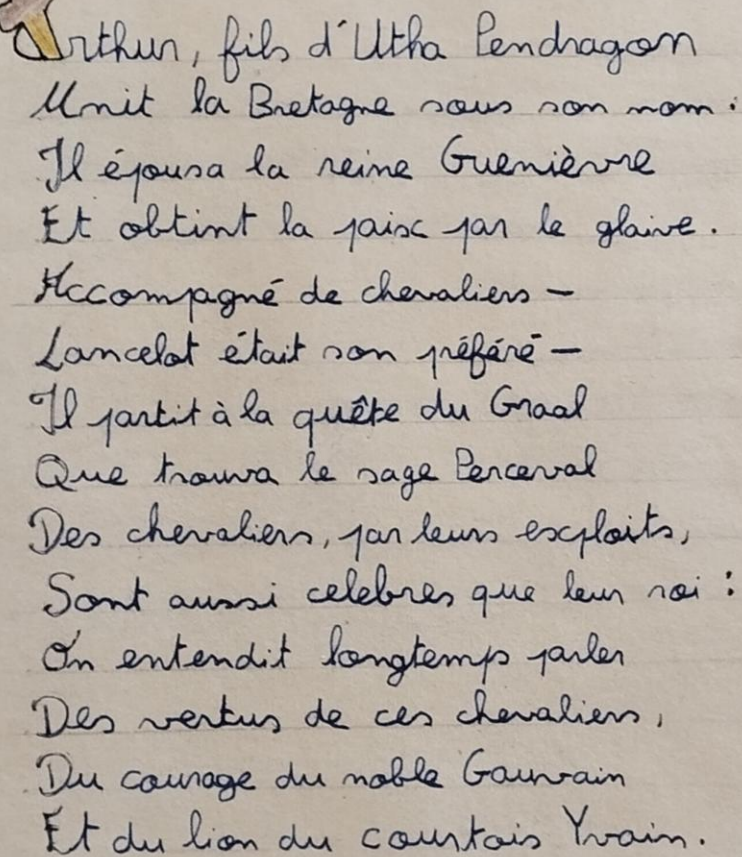 Arthur, fils d'Utha Pendragon
Unit la Bretagne sous son nom.
Il épousa la reine Guenièvre
Et obtint la paix par le glaive.
Accompagné de chevaliers -
Lancelot était son préféré -
Il partit à la quête du Graal
Que trouva le sage Perceval
Des chevaliers, par leurs exploits,
Sont aussi celebres que leur roi :
On entendit longtemps parler
Des vertus de ces chevaliers,
Du courage du noble Gauvain
Et du lion du courtois Yvain.